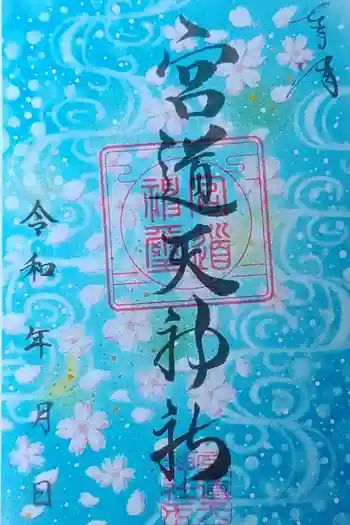 奉拝
宮道天神社
令和 年 月 日